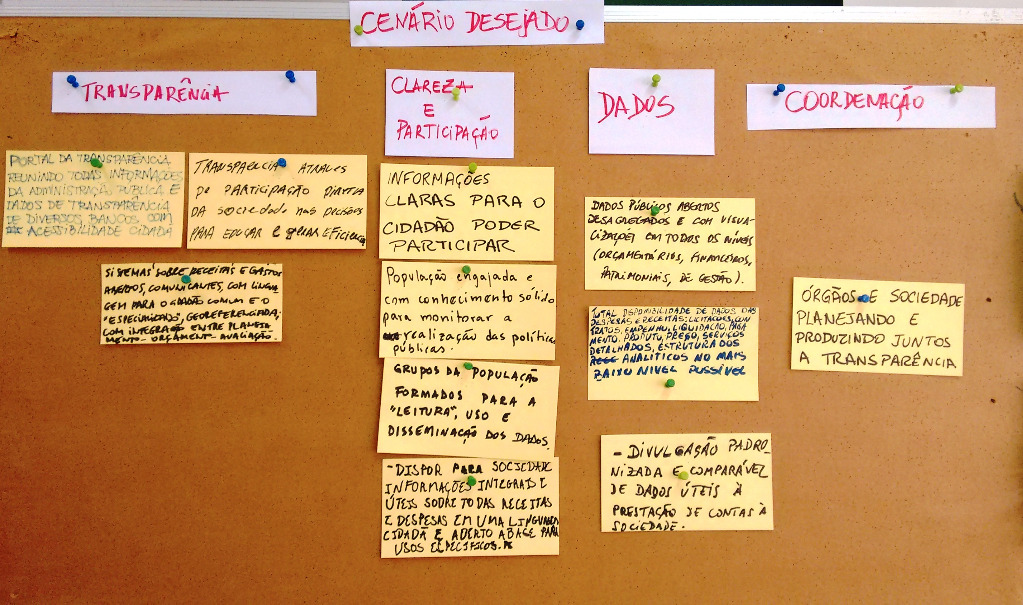 CENÁRIO DESEJADO
TRANSPARÊNCIA
PORTAL DA TRANSPARÊNCIA
REUNINDO TODAS INFORMAÇÕES
DA ADMINISTRAÇÃO PÚBLICA E
DADOS DE TRANSPARÊNCIA
DE DIVERSOS BANCOS COM
ACESSIBILIDADE CIDADÃ
TRANSPARÊNCIA ATRAVES
DE PARTICIPAÇÃO DIRETA
DA sociedade nas decisões
PARA EDUCAR E gerar EFICIÊNCIA
SISTEMAS SOBRE RECEITAS E GASTOS
ABERTOS, COMUNICANTES, COM LINGUA
GEM PARA O CIDADÃO COMUM E O
"ESPECIALIZADO", GEOREFERENCIADA,
COM INTEGRAÇÃO ENTRE PLANEJA
MENTO - ORÇAMENT - AVALIAÇÃO.
CLAREZA
E
PARTICIPAÇÃO
INFORMAÇÕES
CLARAS PARA O
CIDADÃO PODER
PARTICIPAR
População engajada e
com conhecimento sólido
para monitorar a
realização das políticas
públicas.
GRUPOS DA POPULAÇÃO
FORMADOS PARA A
"LEITURA", USO E
DISSEMINAÇÃO DOS DADOS.
- DISPOR PARA SOCIEDADE
INFORMAÇÕES INTEGRAIS E
ÚTEIS SOBRE TODAS RECEITAS
E DESPESAS EM UMA LINGUAGEM
CIDADÃ E ABERTO A BASE PARA
USOS ESPECIFICOS.
DADOS
DADOS PÚBLICOS ABERTOS
DESAGREGADOS E COM VISUA-
LIZAÇÕES EM TODOS OS NÍVEIS
(ORÇAMENTÁRIOS, FINANCEIROS,
PATRIMONIAIS, DE GESTÃO).
TOTAL DISPONIBILIDADE DE DADOS DAS
DESPESAS E RECEITAS: LICITAÇÕES, CON
TRATOS, EMPENHO, LIQUIDAÇÃO, PAGA
MENTO, PRODUTO, PREÇO, SERVIÇOS
DETALHADOS, ESTRUTURA DOS
ANALÍTICOS NO MAIS
BAIXO NIVEL POSSÍVEL
- DIVULGAÇÃO PADRO-
NIZADA E COMPARÁVEL
DE DADOS ÚTEIS À
PRESTAÇÃO DE CONTAS À
SOCIEDADE.
COORDENAÇÃO
ÓRGÃOS E SOCIEDADE
PLANEJANDO E
PRODUZINDO JUNTOS
A TRANSPARÊNCIA